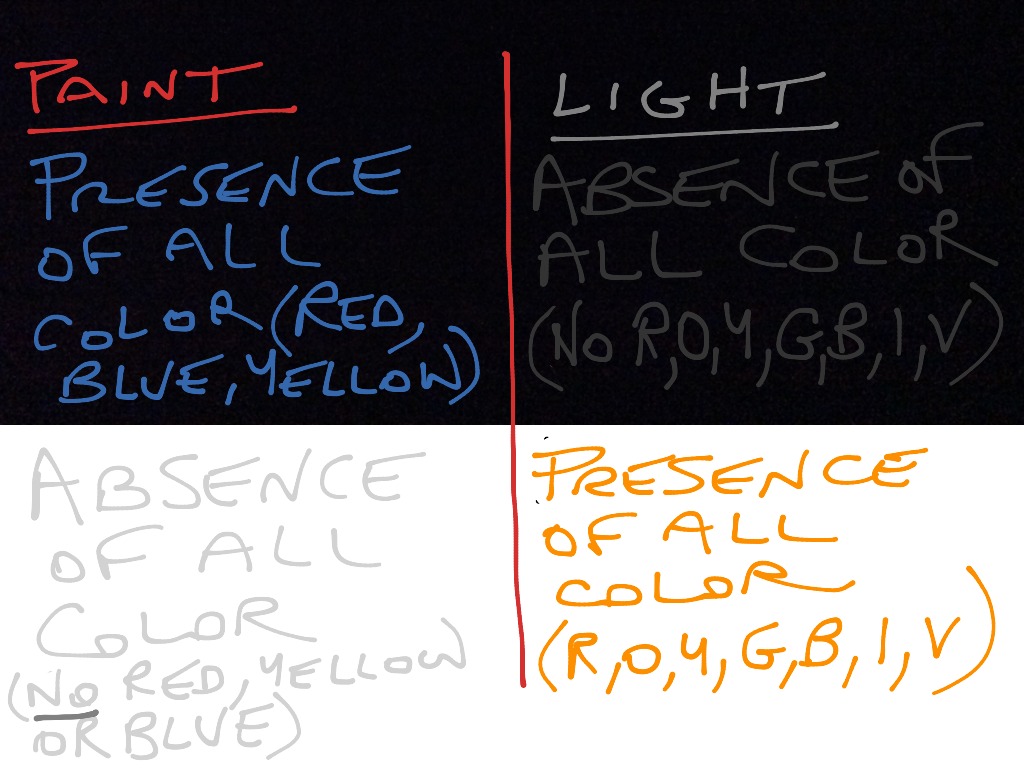 PAINT
PRESENCE
OF ALL
COLOR (RED,
BLUE, YELLOW)
ABSENCE
OF ALL
COLOR
(NO RED, YELLOW
OR BLUE)
LIGHT
ABSENCE OF
ALL COLOR
(NO R, O, Y, G, B, I, V)
PRESENCE
OF ALL
COLOR
(R, O, Y, G, B, I, V)